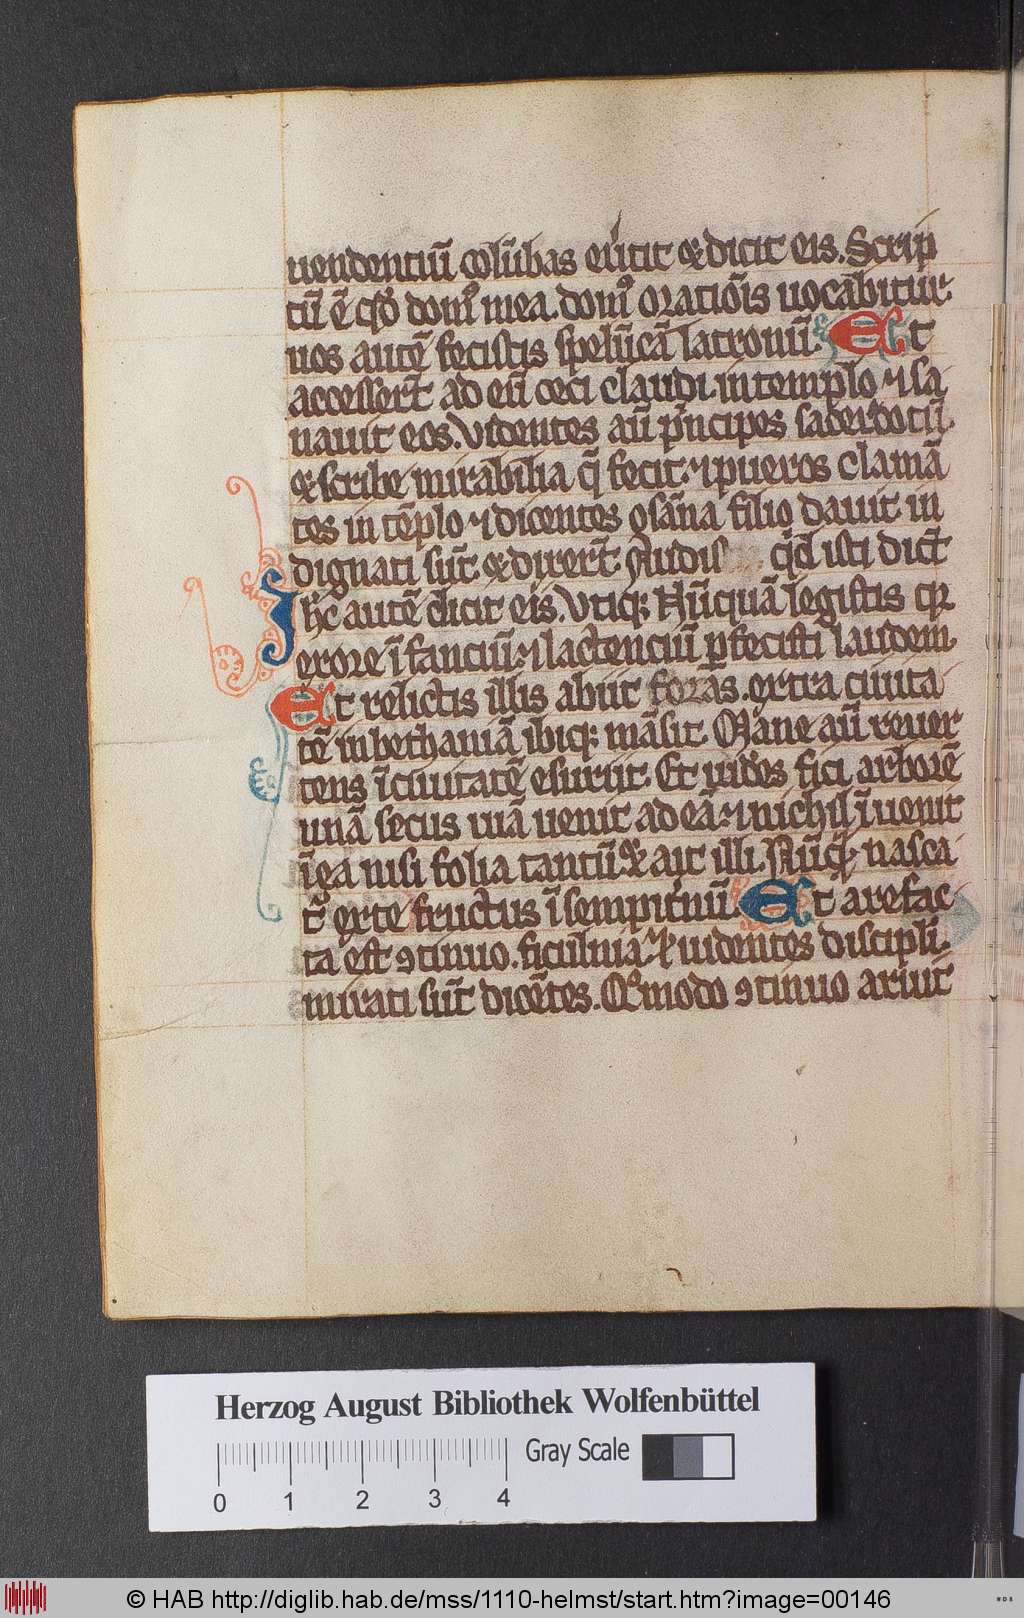 uendentiū colūbas eũtit ⁊ dicit eis. Scrip
tū ē qð domꝰ mea. domꝰ orationis uocabitur.
uos autē fecistis spelūcā latronū. Et
accesserūt ad eū ceci claudi. in templo ⁊ sa
nauit eos. Videntes aū p̄ncipes sacerdotū.
⁊ scribe mirabilia q̄ fecit. ⁊ pueros clamā
tes in tēplo ⁊ dicentes osāna filio dauit. in
dignati sūt. ⁊ dixerūt. Audis qid isti dicūt
Ihc autē dicit eis. Vtiqꝫ Nūquā legistis qꝫ
exore īfanciū. ⁊ lactenciū ꝑfecisti laudem.
Et relictis illis abiit foras. extra ciuita
tē in bethaniā ibiqꝫ māsit. Mane aū reuer
tens ī ciuitatē esuriit. Et uidēs fici arborē
unā secus uiā uenit ad eā. ⁊ nichil īuenit
ī ea nisi folia tantū. ⁊ ait illi. Nūq̄ nasca
t̄ exte fructus ī sempit̄nū. Et arefac
ta est ꝯtinuo. ficulnia. ⁊ uidentes discipli.
mirati sūt dicētes. Qͦmodo ꝯtinuo aruit
Herzog August Bibliothek Wolfenbüttel
Gray Scale
0 1 2 3 4
© HAB http://diglib.hab.de/mss/1110-helmst/start.htm?image=00146